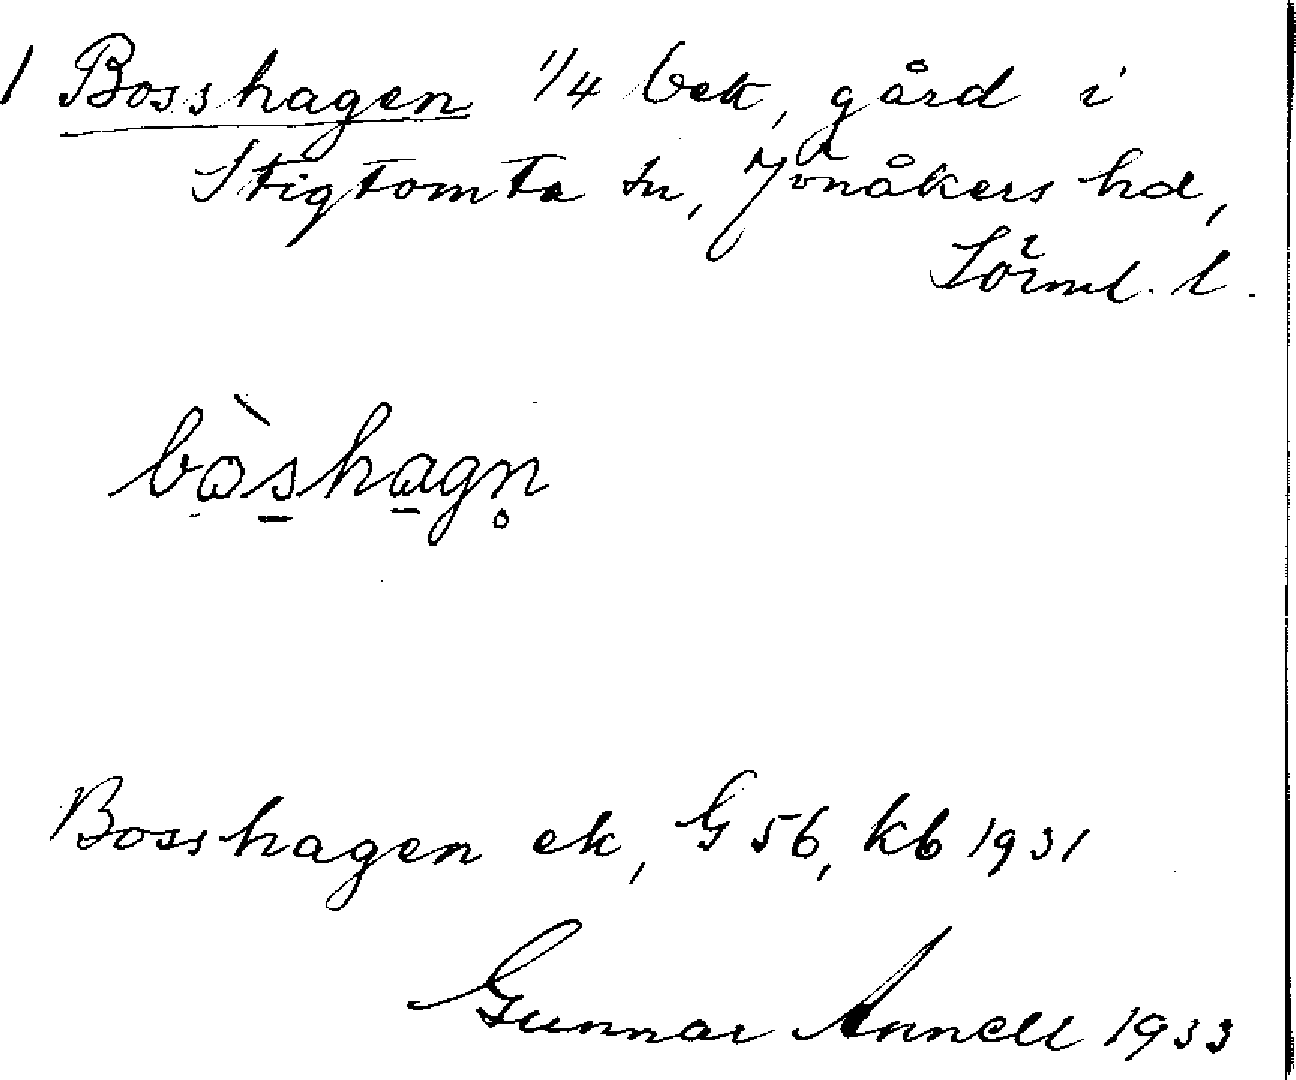 1 Bosshagen 1/4 bek, gård i
Stigtomta sn, Jönåkers hd,
Sörml. l.
bòshagn̥
Bosshagen ek, G 56, kb 1931
Gunnar Annell 1933